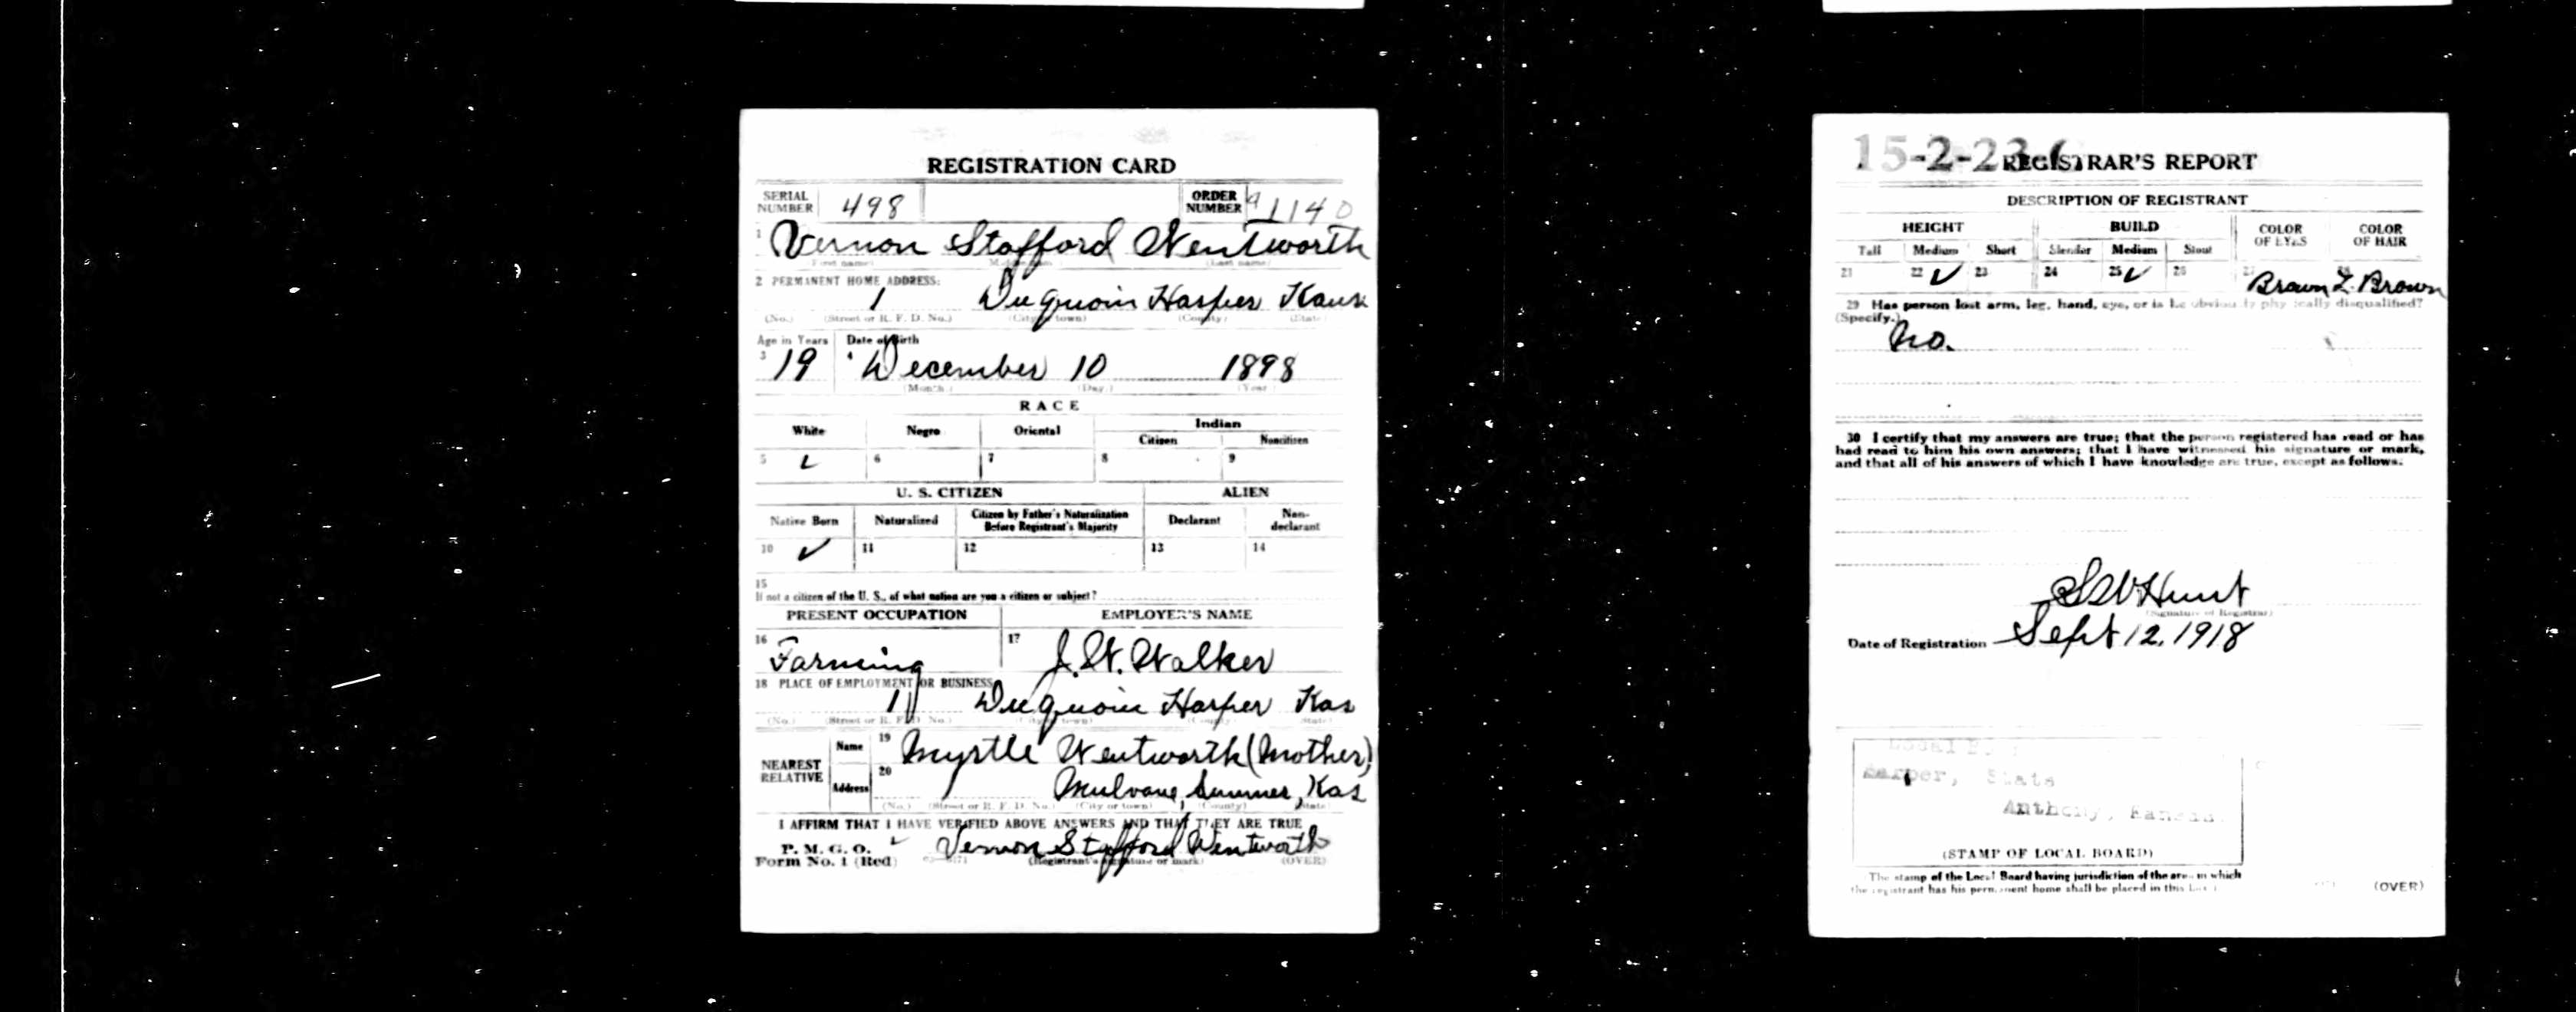 REGISTRATION CARD
SERIAL NUMBER 498 ORDER NUMBER A1140
1 Vernon Stafford Wentworth
(First name) (Last name)
2 PERMANENT HOME ADDRESS:
1 Duquoin Harper Kans
(No.) (Street or R. F. D. No.) (City or town) (County) (State)
Age in Years Date of Birth
3 19 4 December 10 1898
(Month.) (Day.) (Year.)
RACE
White Negro Oriental Indian
Citizen Noncitizen
5 ✓ 6 7 8 9
U. S. CITIZEN ALIEN
Native Born Naturalized Citizen by Father's Naturalization Before Registrant's Majority Declarant Non-declarant
10 ✓ 11 12 13 14
15
If not a citizen of the U. S., of what nation are you a citizen or subject?
PRESENT OCCUPATION EMPLOYER'S NAME
16 Farming 17 J. W. Walker
18 PLACE OF EMPLOYMENT OR BUSINESS
1 Duquoin Harper Kas
(No.) (Street or R. F. D. No.) (City or town) (County) (State)
NEAREST RELATIVE Name 19 Myrtle Wentworth (Mother)
Address 20 Mulvane, Sumner, Kas
(No.) (Street or R. F. D. No.) (City or town) (County) (State)
I AFFIRM THAT I HAVE VERIFIED ABOVE ANSWERS AND THAT THEY ARE TRUE
P. M. G. O. ✓
Form No. 1 (Red) Vernon Stafford Wentworth
(Registrant's signature or mark) (OVER)
15-2-23 REGISTRAR'S REPORT
DESCRIPTION OF REGISTRANT
HEIGHT BUILD COLOR OF EYES COLOR OF HAIR
Tall Medium Short Slender Medium Stout
21 22 ✓ 23 24 25 ✓ 26 27 Brown 28 L. Brown
29 Has person lost arm, leg, hand, eye, or is he obviously physically disqualified?
(Specify.)
No.
30 I certify that my answers are true; that the person registered has read or has
had read to him his own answers; that I have witnessed his signature or mark,
and that all of his answers of which I have knowledge are true, except as follows.
S W Hunt
(Signature of Registrar)
Date of Registration Sept 12, 1918
Local
Harper, State
Anthony, Kansas.
(STAMP OF LOCAL BOARD)
The stamp of the Local Board having jurisdiction of the area in which
the registrant has his permanent home shall be placed in this box.
(OVER)